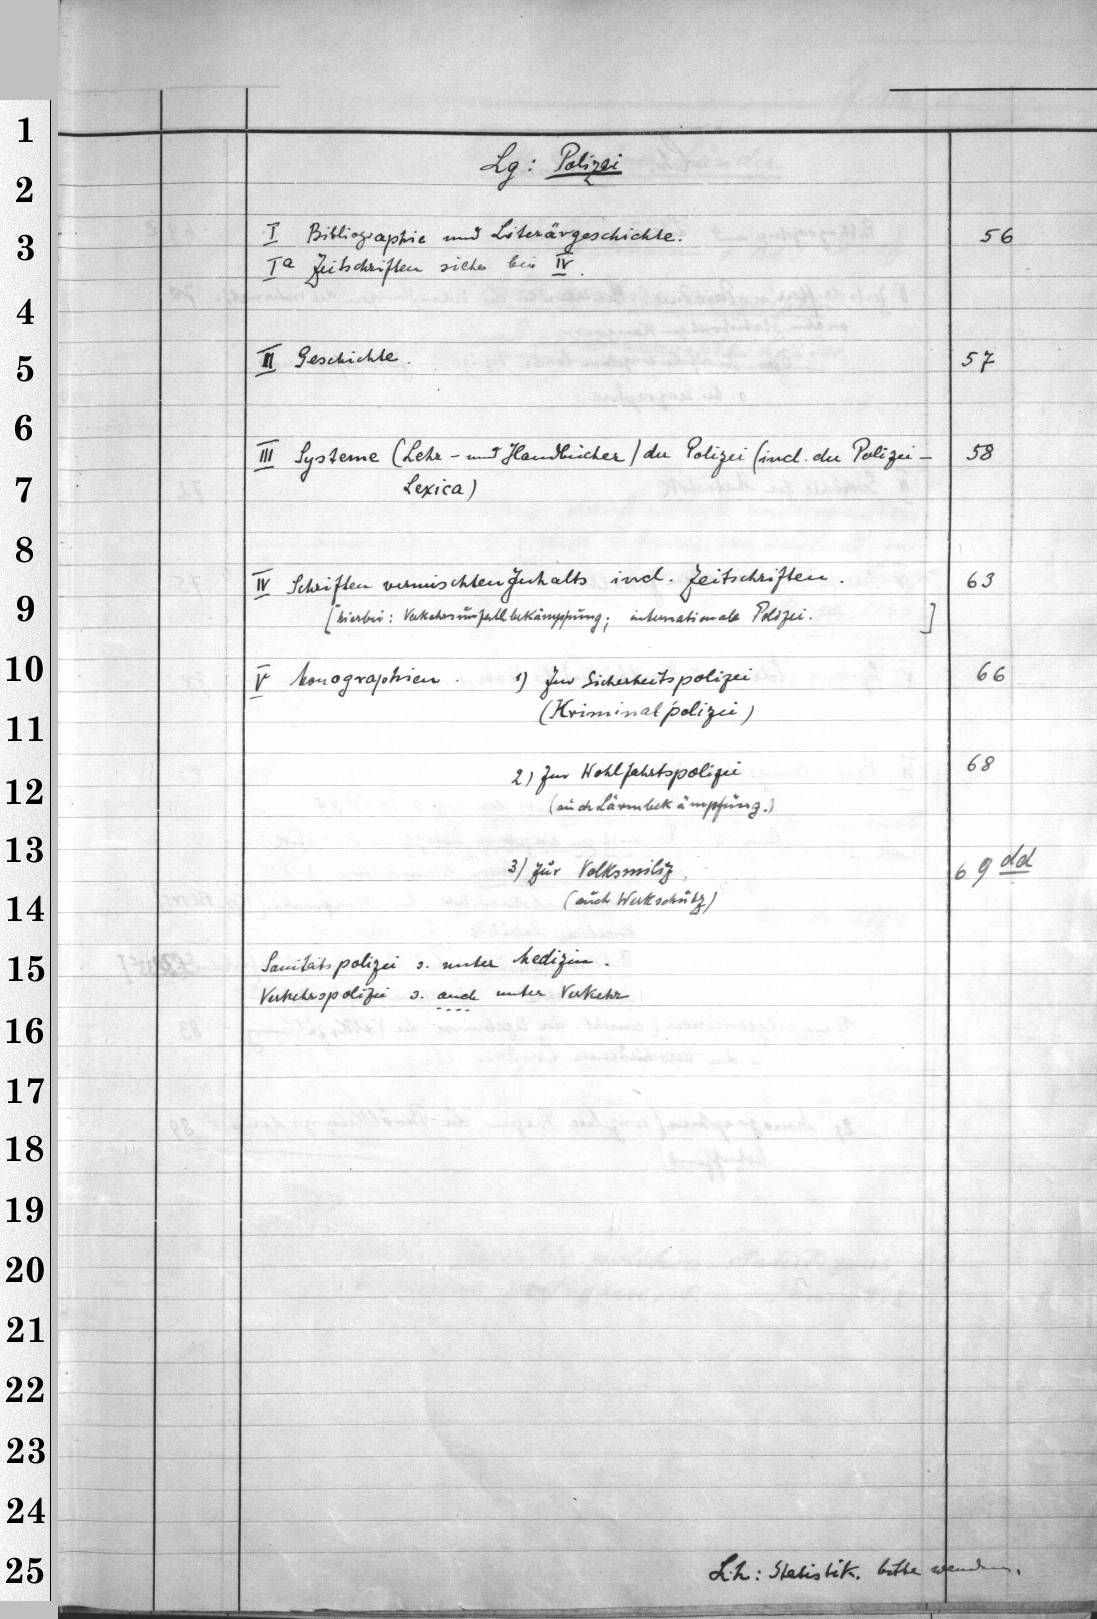 1
2
3
4
5
6
7
8
9
10
11
12
13
14
15
16
17
18
19
20
21
22
23
24
25
Lg: Polizei
I Bibliographie und Literärgeschichte. 56
Ia Zeitschriften siehe bei IV.
II Geschichte. 57
III Systeme (Lehr- und Handbücher) der Polizei (incl. der Polizei- 58
Lexica)
IV Schriften vermischten Inhalts incl. Zeitschriften. 63
[hierbei: Verkehrsunfallbekämpfung; internationale Polizei. ]
V Monographien. 1) Zur Sicherheitspolizei 66
(Kriminalpolizei)
2) Zur Wohlfahrtspolizei 68
(auch Lärmbekämpfung.)
3) Zur Volksmiliz, 69 dd
(auch Werkschutz)
Sanitätspolizei s. unter Medizin.
Verkehrspolizei s. auch unter Verkehr
Lh: Statistik. bitte wenden.